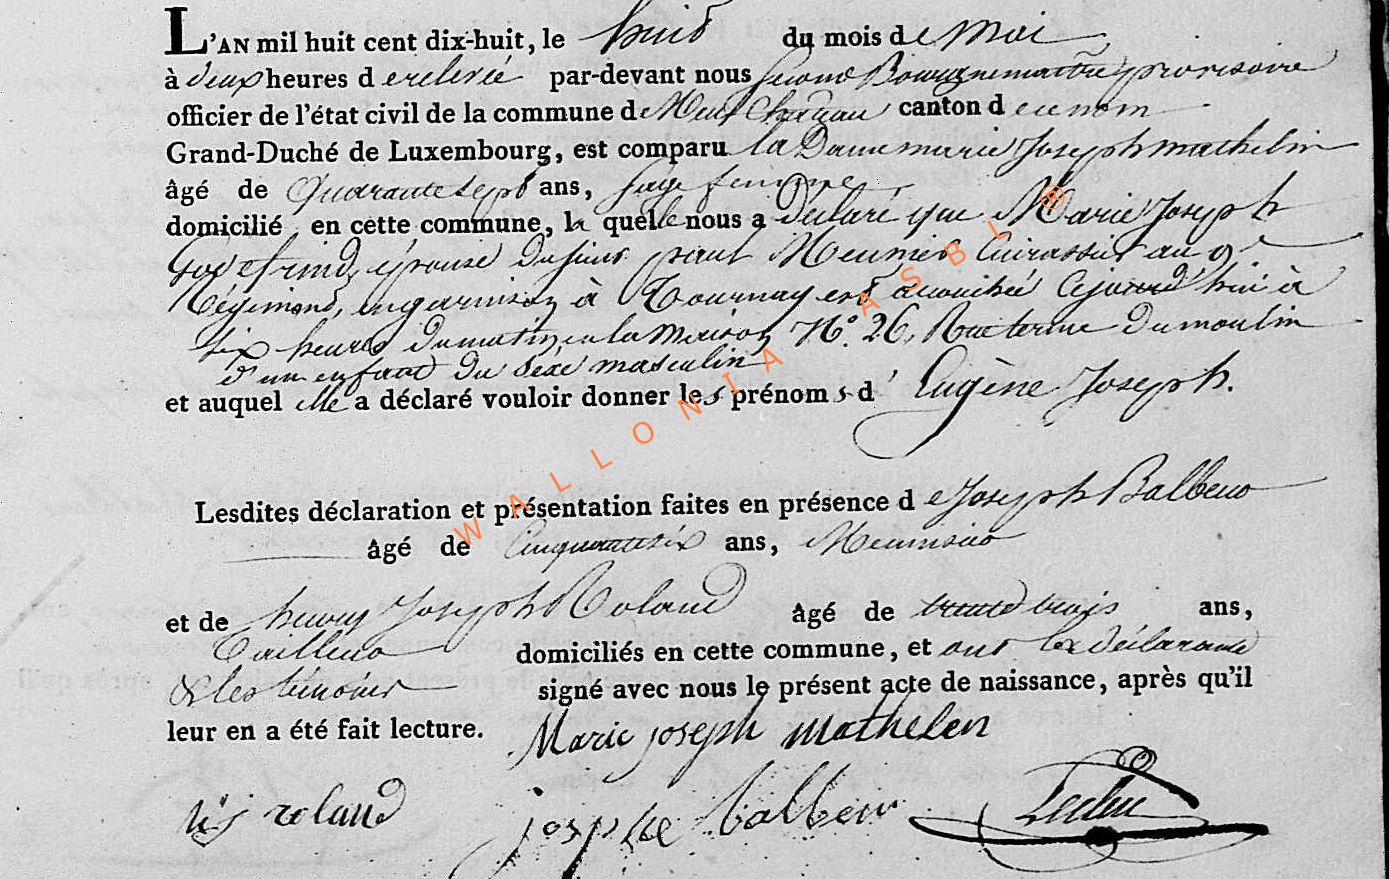 L'AN mil huit cent dix-huit, le huit du mois de Mai
à deux heures de relevée par-devant nous second Bourguemaitre provisoire
officier de l'état civil de la commune de Neufchateau canton de ce nom
Grand-Duché de Luxembourg, est comparu la Dame marie Joseph mathelin
âgé de Quarante sept ans, sage femme,
domicilié en cette commune, la quelle nous a déclaré que Marie Joseph
Godefrind, épouse du sieur paul Meunier Cuirassier au 9e
Régiment, en garnison à Tournay est accouchée cejourd'hui à
six heures du matin en la maison N.° 26, Rue terme du moulin
d'un enfant du sexe masculin
et auquel elle a déclaré vouloir donner les prénoms d'Eugène Joseph.
Lesdites déclaration et présentation faites en présence de Joseph Balbeur
âgé de Cinquante six ans, Menuisier
et de henry Joseph Roland âgé de trente trois ans,
Tailleur domiciliés en cette commune, et ont la déclarante
& les témoins signé avec nous le présent acte de naissance, après qu'il
leur en a été fait lecture. Marie joseph mathelen
roland josphe balbeur
WALLONIA ASBL ®